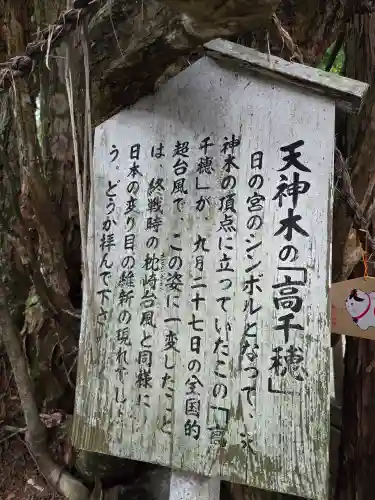 天神木の「高千穂」
日の宮のシンボルとなって、天
神木の頂点に立っていたこの「高
千穂」が、九月二十七日の全国的
超台風で、この姿に一変したこと
は、終戦時の枕崎台風と同様に
日本の変り目の維新の現れでしょ
う。どうかお拝んで下さい